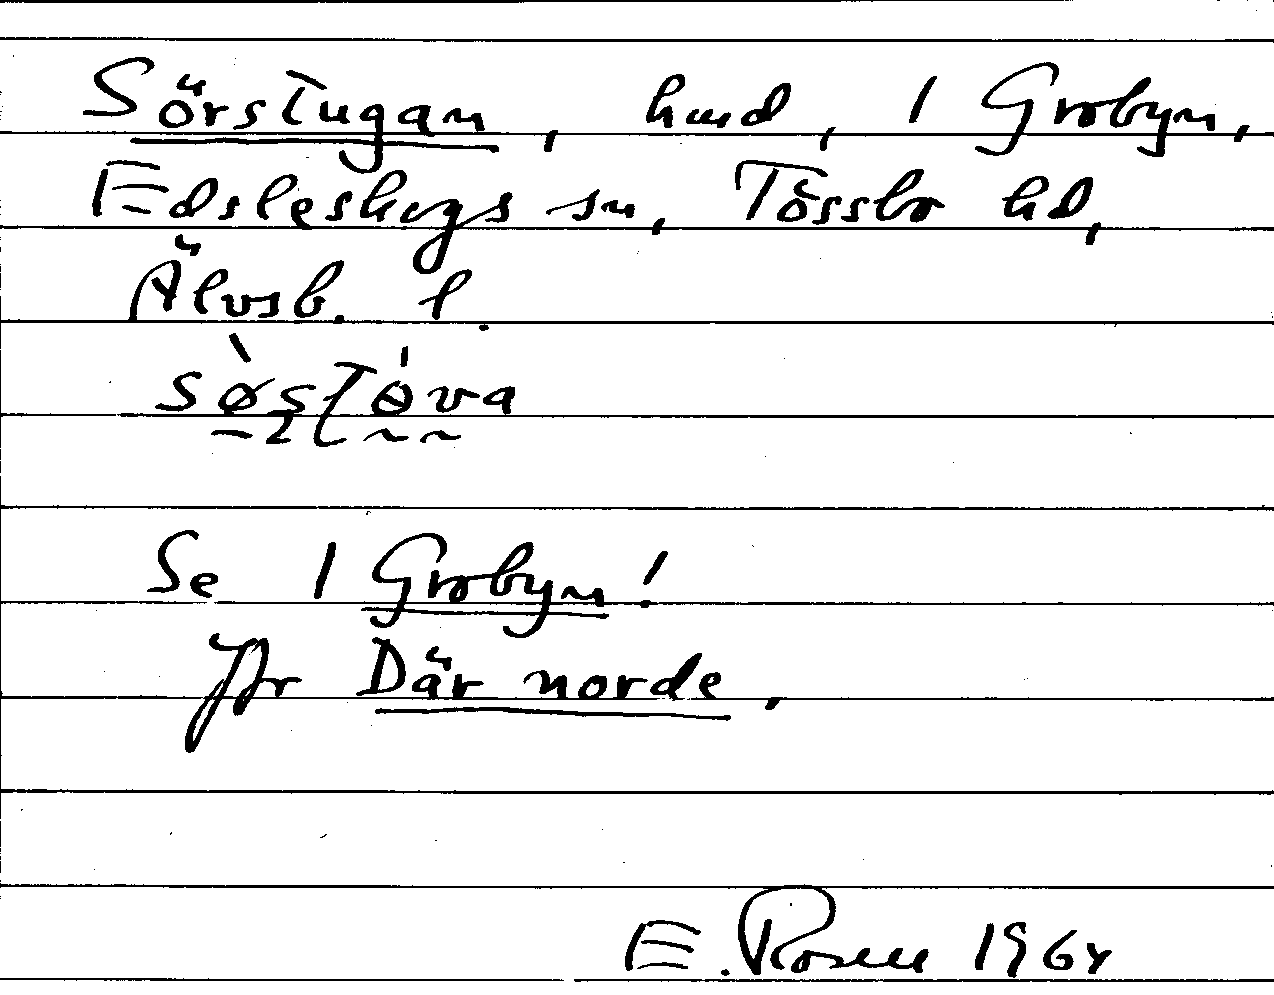 Sörstugan, hmd, 1 Grobyn,
Edsleskogs sn, Tössbo hd,
Älvsb. l.
søstɵva
Se 1 Grobyn!
Jfr Där norde.
E. Rosell 1964